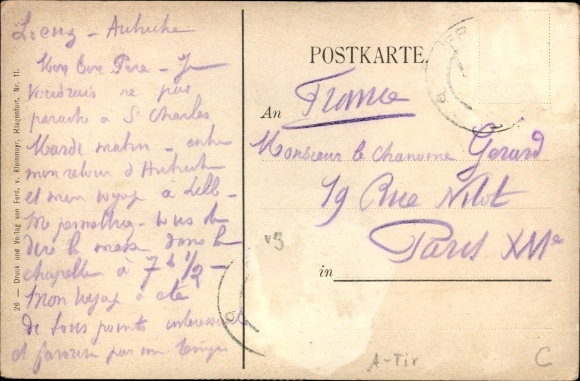 Lienz - Autriche
Mon bon Père - Je
voudrais ne pas
paraître à St Charles
Mardi matin - entre
mon retour d'Autriche
et mon voyage à Lille -
Me permettriez-vous de
dire la messe dans la
chapelle à 7h 1/2 -
Mon voyage a été
de tous points intéressant
et favorisé par un temps
26 — Druck und Verlag von Ferd. v. Kleinmayr, Klagenfurt, Nr. 11.
POSTKARTE.
An
France
Monsieur le Chanoine Gérard
19 Rue
Paris XVIe
in
v3
A-Tir
C